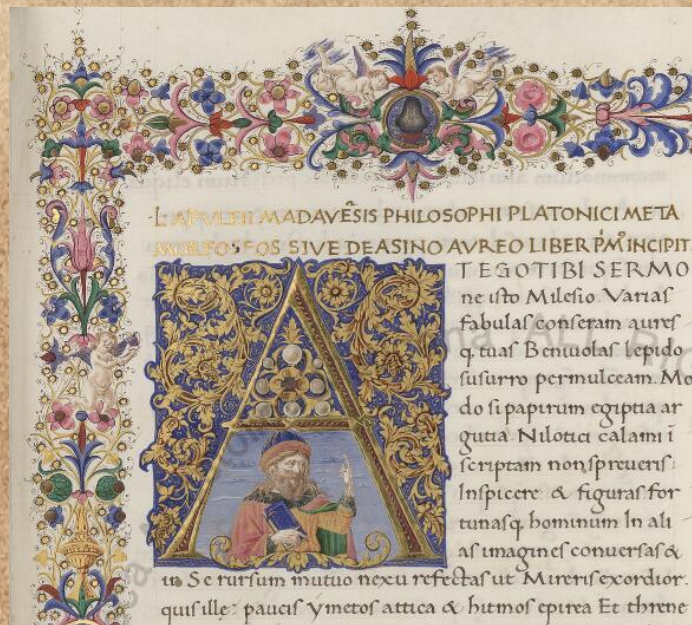 L APVLEII MADAVE᷃SIS PHILOSOPHI PLATONICI META
MORFOSEOS SIVE DEASINO AVREO LIBER PM̊ INCIPIT
A
TEGOTIBI SERMO
ne isto Milesio Varias
fabulas conseram aures
q tuas Beniuolas lepido
susurro permulceam. Mo
do si papirum egiptia ar
gutia Nilotici calami ī
scriptam non spreueris:
Inspicere & figuras for
tunasq hominum In ali
as imagines conuersas &
in Se rursum mutuo nexu refectas ut Mireris exordior.
quis ille: paucis ymetos attica & hitmos epirea Et threne